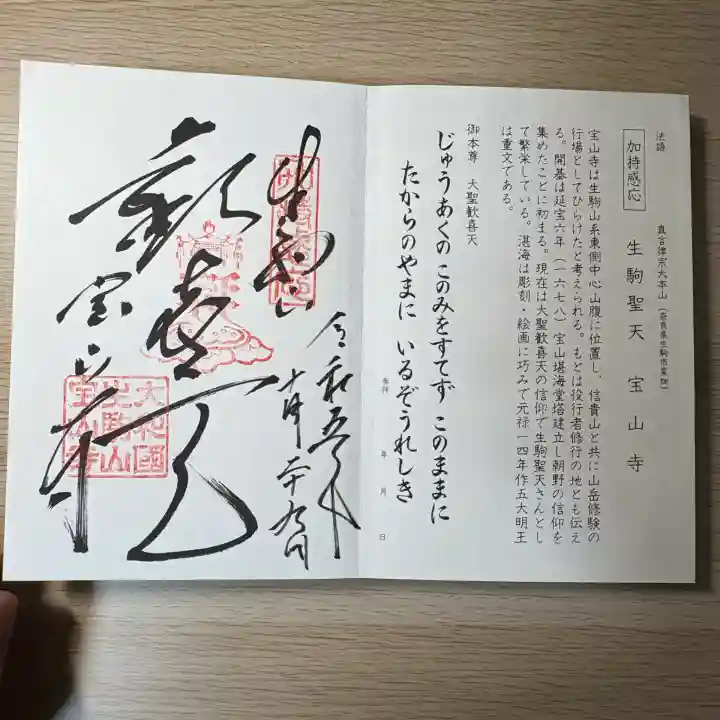 法語
加持感応
真言律宗大本山(奈良県生駒市菜畑)
生駒聖天 宝山寺
宝山寺は生駒山系東側中心山腹に位置し、信貴山と共に山岳修験の
行場としてひらけたと考えられる。もとは役行者修行の地とも伝え
る。開基は延宝六年(一六七八)宝山堪海堂塔建立し朝野の信仰を
集めたことに初まる。現在は大聖歓喜天の信仰で生駒聖天さんとし
て繁栄している。湛海は彫刻・絵画に巧みで元禄一四年作五大明王
は重文である。
御本尊 大聖歓喜天
じゅうあくの このみをすてず このままに
たからのやまに いるぞうれしき
参拝 年 月 日
令和五年
十月二十九日
生駒山
歓喜天
宝山寺
大和國
生駒山
宝山寺